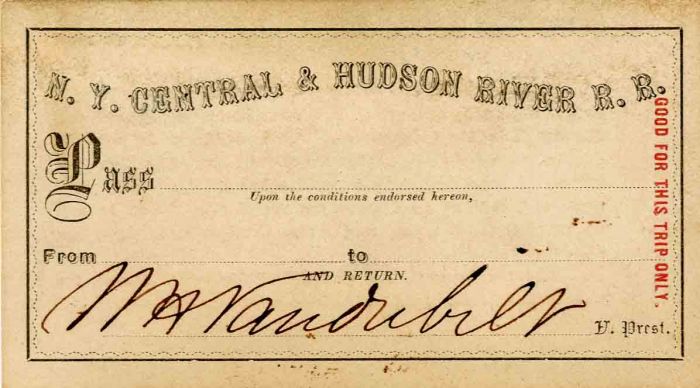 N. Y. CENTRAL & HUDSON RIVER R. R.
Pass
Upon the conditions endorsed hereon,
From to
AND RETURN.
WHVanderbilt V. Prest.
GOOD FOR THIS TRIP ONLY.